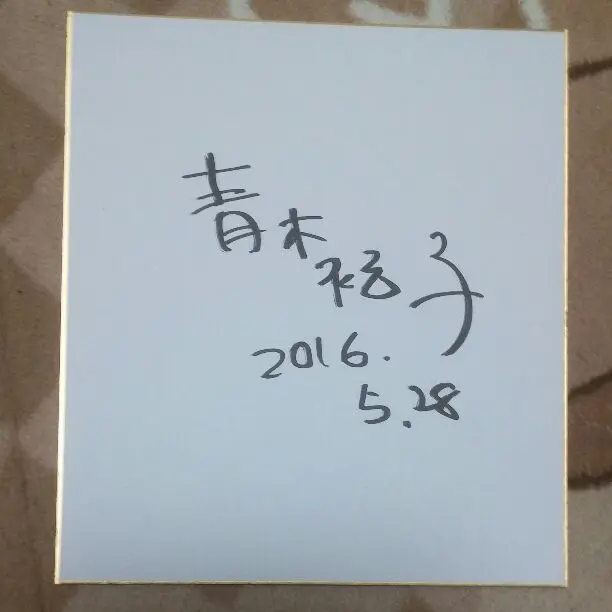 青木裕子
2016.
5.28